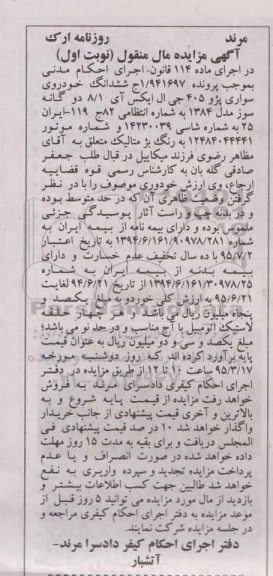 مرند روزنامه ارک
آگهی مزایده مال منقول (نوبت اول)
در اجرای ماده ۱۱۴ قانون، اجرای احکام مدنی
بموجب پرونده ۱/۹۴۱۶۹۷ج ششدانگ خودروی
سواری پژو ۴۰۵ جی ال ایکس آی ۱/۸ دو گانه
سوز مدل ۱۳۸۴ به شماره انتظامی ۸۲ج ۱۱۹-ایران
۲۵ به شماره شاسی ۱۴۲۳۰۰۳۹ و شماره موتور
۱۲۴۸۴۰۴۴۴۴۱ به رنگ بژ متالیک متعلق به آقای
مظاهر رضوی فرزند میکاییل در قبال طلب جعفر
صادقی گله بان به کارشناس رسمی قوه قضاییه
ارجاع، وی ارزش خودوری موصوف را با در نظر
گرفتن وضعیت ظاهری آن که در حد متوسط بوده
و در بدنه چپ و راست آثار پوسیدگی جزئی
ملموس بوده و دارای بیمه نامه از بیمه ایران به
شماره ۱۳۹۴/۶/۱۶۱/۹۰۹۷۸/۲۸۱ به تاریخ اعتبار
۹۵/۷/۲ با ده سال تخفیف عدم خسارت و دارای
بیمه بدنه از بیمه ایران به شماره
۱۳۹۴/۶/۱۶۱/۳۰۹۷۸/۲۵ از تاریخ ۹۴/۶/۲۱ لغایت
۹۵/۶/۲۱ به ارزش کلی خودرو به مبلغ یکصد و
پنجاه میلیون ریال می باشد و هر چهار حلقه
لاستیک اتومبیل با آج مناسب و در حد نو می باشد؛
مبلغ یکصد و سی و دو میلیون ریال به عنوان قیمت
پایه برآورد کرده اند که روز دوشنبه مورخه
۹۵/۳/۱۷ ساعت ۱۰ تا ۱۲ از طریق مزایده در دفتر
اجرای احکام کیفری دادسرای مرند به فروش
خواهد رفت مزایده از قیمت پایه شروع و به
بالاترین و آخری قیمت پیشنهادی از جانب خریدار
واگذار خواهد شد ۱۰ در صد قیمت پیشنهادی فی
المجلس دریافت و برای بقیه به مدت ۱۵ روز مهلت
داده خواهد شده در صورت انصراف و یا عدم
پرداخت مزایده تجدید و سپرده واریزی به نفع
خواهد شد طالبین جهت کسب اطلاعات بیشتر و
بازدید از مال مورد مزایده می توانید ۵ روز قبل از
موعد مزایده به دفتر اجرای احکام کیفری مراجعه و
در جلسه مزایده شرکت نمایند.
دفتر اجرای احکام کیفر دادسرا مرند-
آتشبار